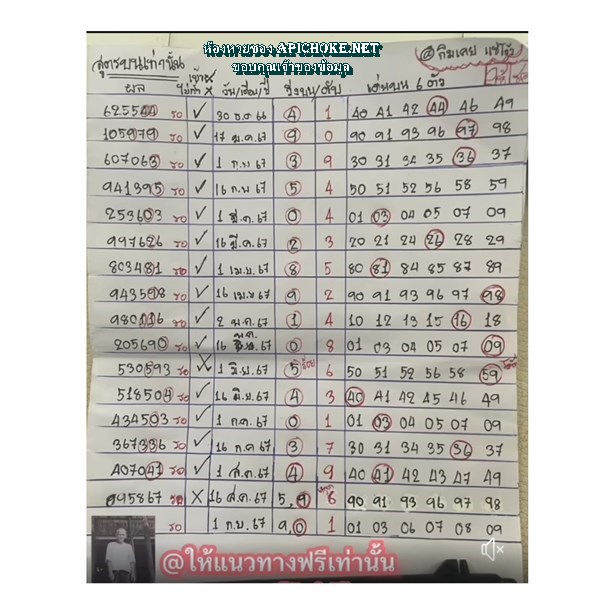 ห้องหวยซอง APICHOKE.NET
ขอบคุณเจ้าของข้อมูล
สูตรบนเท่านั้น
เข้า ไม่เข้า X วัน/เดือน/ปี ดับ เด่นบน 6 ตัว
ผล
625544 รอ ✓ 30 ธ.ค 66 4 1 40 41 42 44 46 49
105979 รอ ✓ 17 ม.ค.67 9 0 90 91 93 96 97 98
607063 รอ ✓ 1 ก.พ 67 3 9 30 31 34 35 36 37
941395 รอ ✓ 16 ก.พ 67 5 4 50 51 52 56 58 59
253603 รอ ✓ 1 มี.ค.67 0 4 01 03 04 05 07 09
997626 รอ ✓ 16 มี.ค.67 2 3 20 21 24 26 28 29
803481 รอ ✓ 1 เม.ย.67 8 5 80 81 84 85 87 89
943598 รอ ✓ 16 เม.ย 67 9 2 90 91 93 96 97 98
980116 รอ ✓ 2 พ.ค.67 1 4 10 12 13 15 16 18
205690 รอ ✓ 16 พ.ค. 67 0 8 01 03 04 05 07 09
530593 รอ 1 มิ.ย.67 5 6 50 51 52 56 58 59
518504 รอ ✓ 16 มิ.ย.67 4 3 40 41 42 45 46 49
434503 รอ ✓ 1 ก.ค.67 0 1 01 03 04 05 07 09
367336 รอ ✓ 16 ก.ค 67 3 7 30 31 34 35 36 37
407041 รอ ✓ 1 ส.ค.67 4 9 40 41 42 43 47 49
095867 รอ X 16 ส.ค.67 5,9 8 90 91 93 96 97 98
รอ 1 ก.ย.67 9,0 1 01 03 06 07 08 09
@ให้แนวทางฟรีเท่านั้น